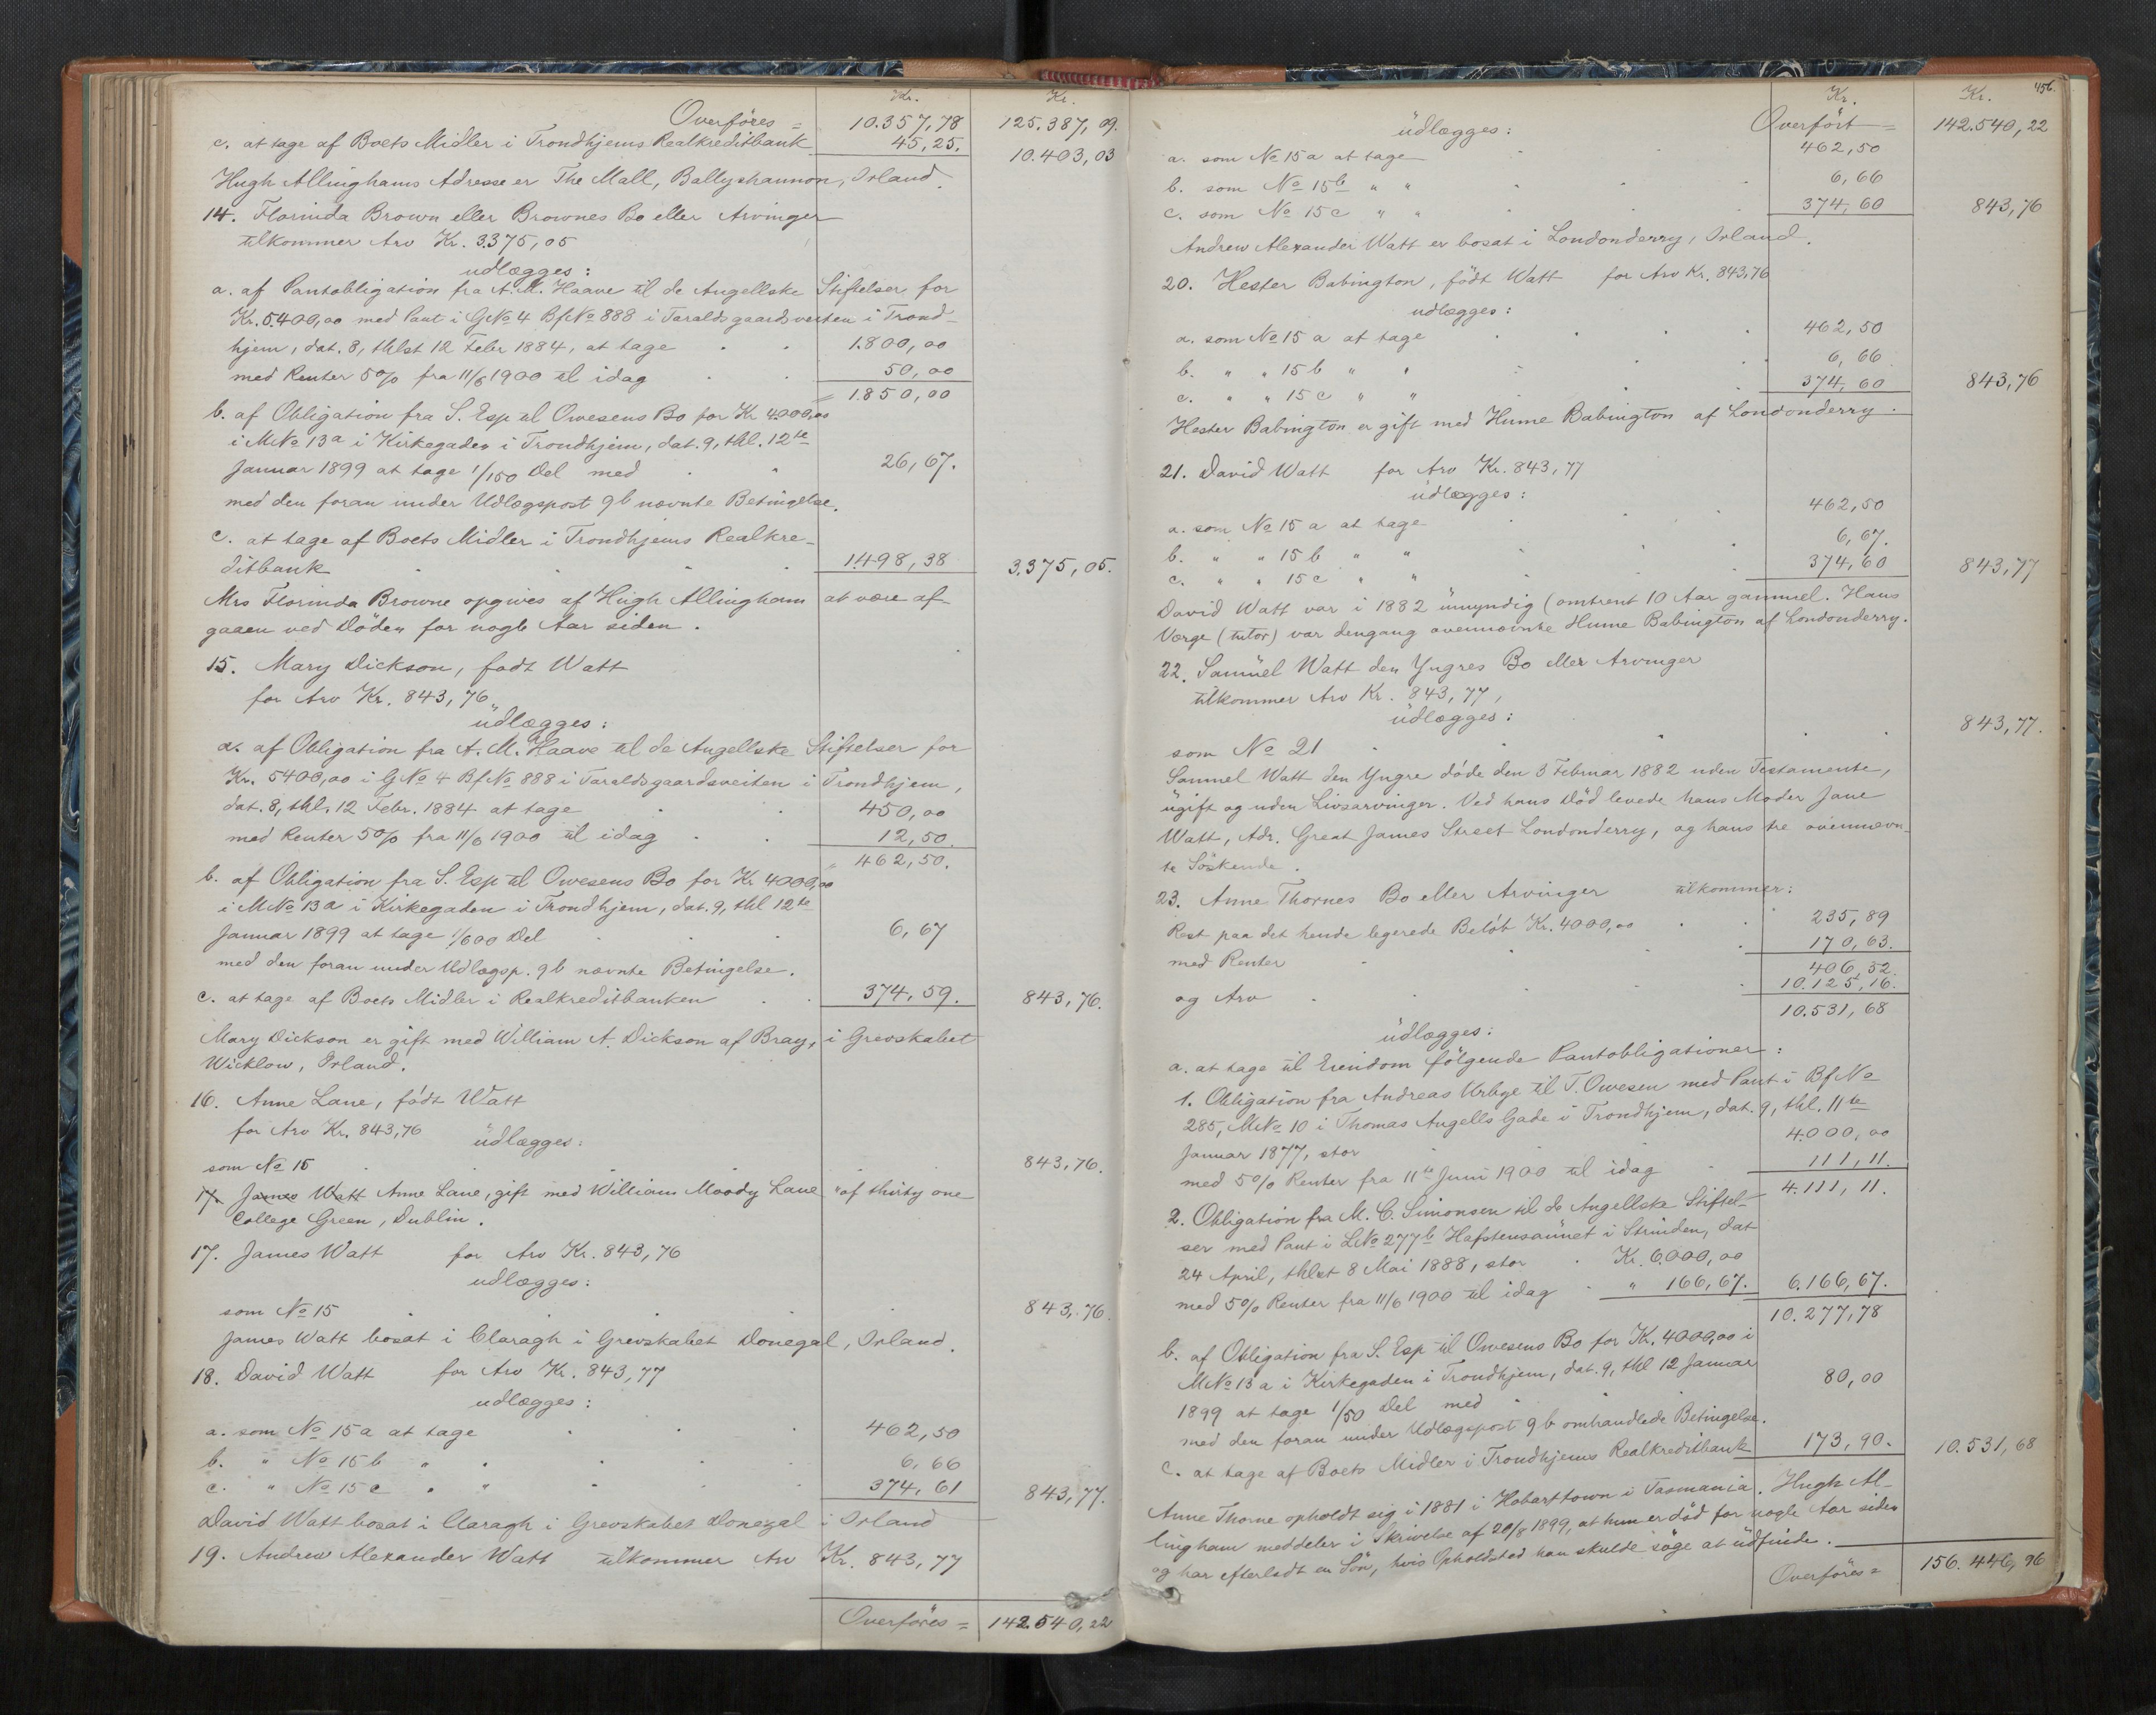 Kr. Kr.
Overföres = 10.357,78 125.387,09.
c. at tage af Boets Midler i Trondhjems Realkreditbank 45,25. 10.403,03
Hugh Allinghams Adresse er The Mall, Ballyshannon, Irland.
14. Florinda Brown eller Brownes Bo eller Arvinger
tilkommer Arv Kr. 3.375,05
udlægges:
a. af Pantobligation fra A. M. Haave til de Angellske Stiftelser for
Kr. 5.400,00 med Pant i GNo 4 BfNo 888 i Taraldsgaardsveiten i Trond-
hjem, dat. 8, thlst 12 Febr 1884, at tage 1.800,00
med Renter 5% fra 11/6 1900 til idag 50,00
= 1.850,00
b. af Obligation fra S. Esp til Owesens Bo for Kr 4000,00
i MNo 13a i Kirkegaden i Trondhjem, dat. 9, thl. 12te
Januar 1899 at tage 1/150 Del med 26,67.
med den foran under Udlægspost 9b nævnte Betingelse.
c. at tage af Boets Midler i Trondhjems Realkre-
ditbank 1.498,38 3.375,05.
Mrs Florinda Browne opgives af Hugh Allingham at være af-
gaaen ved Döden for nogle Aar siden.
15. Mary Dickson, født Watt
for Arv Kr. 843,76
udlægges:
a. af Obligation fra A. M. Haave til de Angellske Stiftelser for
Kr. 5400,00 i GNo 4 BfNo 888 i Taraldsgaardsveiten i Trondhjem,
dat. 8, thl. 12 Febr. 1884 at tage 450,00
med Renter 5% fra 11/6 1900 til idag 12,50.
" 462,50.
b. af Obligation fra S. Esp til Owesens Bo for Kr 4000,00
i MNo 13a i Kirkegaden i Trondhjem, dat. 9, thl 12te
Januar 1899 at tage 1/600 Del 6,67
med den foran under Udlægsp. 9b nævnte Betingelse.
c. at tage af Boets Midler i Realkreditbanken 374,59. 843,76.
Mary Dickson er gift med William A. Dickson af Bray, i Grevskabet
Wicklow, Irland.
16. Anne Lane, född Watt
for Arv Kr. 843,76 udlægges:
som No 15 843,76.
17. James Watt Anne Lane, gift med William Moody Lane "of thirty one
College Green, Dublin.
17. James Watt for Arv Kr. 843,76
udlægges:
som No 15 843,76.
James Watt bosat i Claragh i Grevskabet Donegal, Irland.
18. David Watt for Arv Kr. 843,77
udlægges:
a. som No 15a at tage 462,50
b. " No 15b " " 6,66
c. " No 15c " " 374,61 843,77.
David Watt bosat i Claragh i Grevskabet Donegal i Irland
19. Andrew Alexander Watt tilkommer Arv Kr. 843,77
Overföres = 142.540,22
456.
Kr. Kr.
udlægges: Overfört = 142.540,22
a. som No 15a at tage 462,50
b. som No 15b " " 6,66
c. som No 15c " " 374,60 843,76
Andrew Alexander Watt er bosat i Londonderry, Irland.
20. Hester Babington, födt Watt for Arv Kr. 843,76
udlægges:
a. som No 15a at tage 462,50
b. " " 15b " " 6,66
c. " " 15c " " 374,60 843,76
Hester Babington er gift med Hume Babington af Londonderry.
21. David Watt for Arv Kr. 843,77
udlægges:
a. som No 15a at tage 462,50
b. " " 15b " " 6,67.
c. " " 15c " " 374,60 843,77
David Watt var i 1882 umyndig (omtrent 10 Aar gammel. Hans
Værge (tutor) var dengang ovennævnte Hume Babington af Londonderry.
22. Samuel Watt den Yngres Bo eller Arvinger
tilkommer Arv Kr. 843,77,
udlægges:
som No 21 843,77.
Samuel Watt den Yngre döde den 3 Februar 1882 uden Testamente,
ugift og uden Livsarvinger. Ved hans Död levede hans Moder Jane
Watt, Adr. Great James Street Londonderry, og hans tre ovennævn-
te Söskende.
23. Anne Thornes Bo eller Arvinger tilkommer:
Rest paa det hende legerede Belöb Kr. 4000,00 235,89
med Renter 170,63.
406,52.
og Arv 10.125,16.
10.531,68
udlægges:
a. at tage til Eiendom fölgende Pantobligationer:
1. Obligation fra Andreas Urbye til T. Owesen med Pant i BfNo
285, MNo 10 i Thomas Angells Gade i Trondhjem, dat. 9, thl. 11te
Januar 1877, stor 4.000,00
med 5% Renter fra 11te Juni 1900 til idag 111,11.
4.111,11.
2. Obligation fra M. C. Simonsen til de Angellske Stiftel-
ser med Pant i LNo 277b Hafstensaunet i Strinden, dat
24 April, thlst 8 Mai 1888, stor Kr. 6.000,00
med 5% Renter fra 11/6 1900 til idag " 166,67. 6.166,67.
10.277,78
b. af Obligation fra S. Esp til Owesens Bo for Kr. 4000,00 i
MNo 13a i Kirkegaden i Trondhjem, dat. 9, thl 12 Januar
1899 at tage 1/50 Del med 80,00
med den foran under Udlægspost 9b omhandlede Betingelse.
c. at tage af Boets Midler i Trondhjems Realkreditbank 173,90. 10.531,68
Anne Thorne opholdt sig i 1881 i Hobarttown i Tasmania. Hugh Al-
lingham meddeler i Skrivelse af 20/8 1899, at hun er död for nogle Aar siden
og har efterladt en Sön, hvis Opholdsted han skulde söge at udfinde.
Overföres = 156.446,96